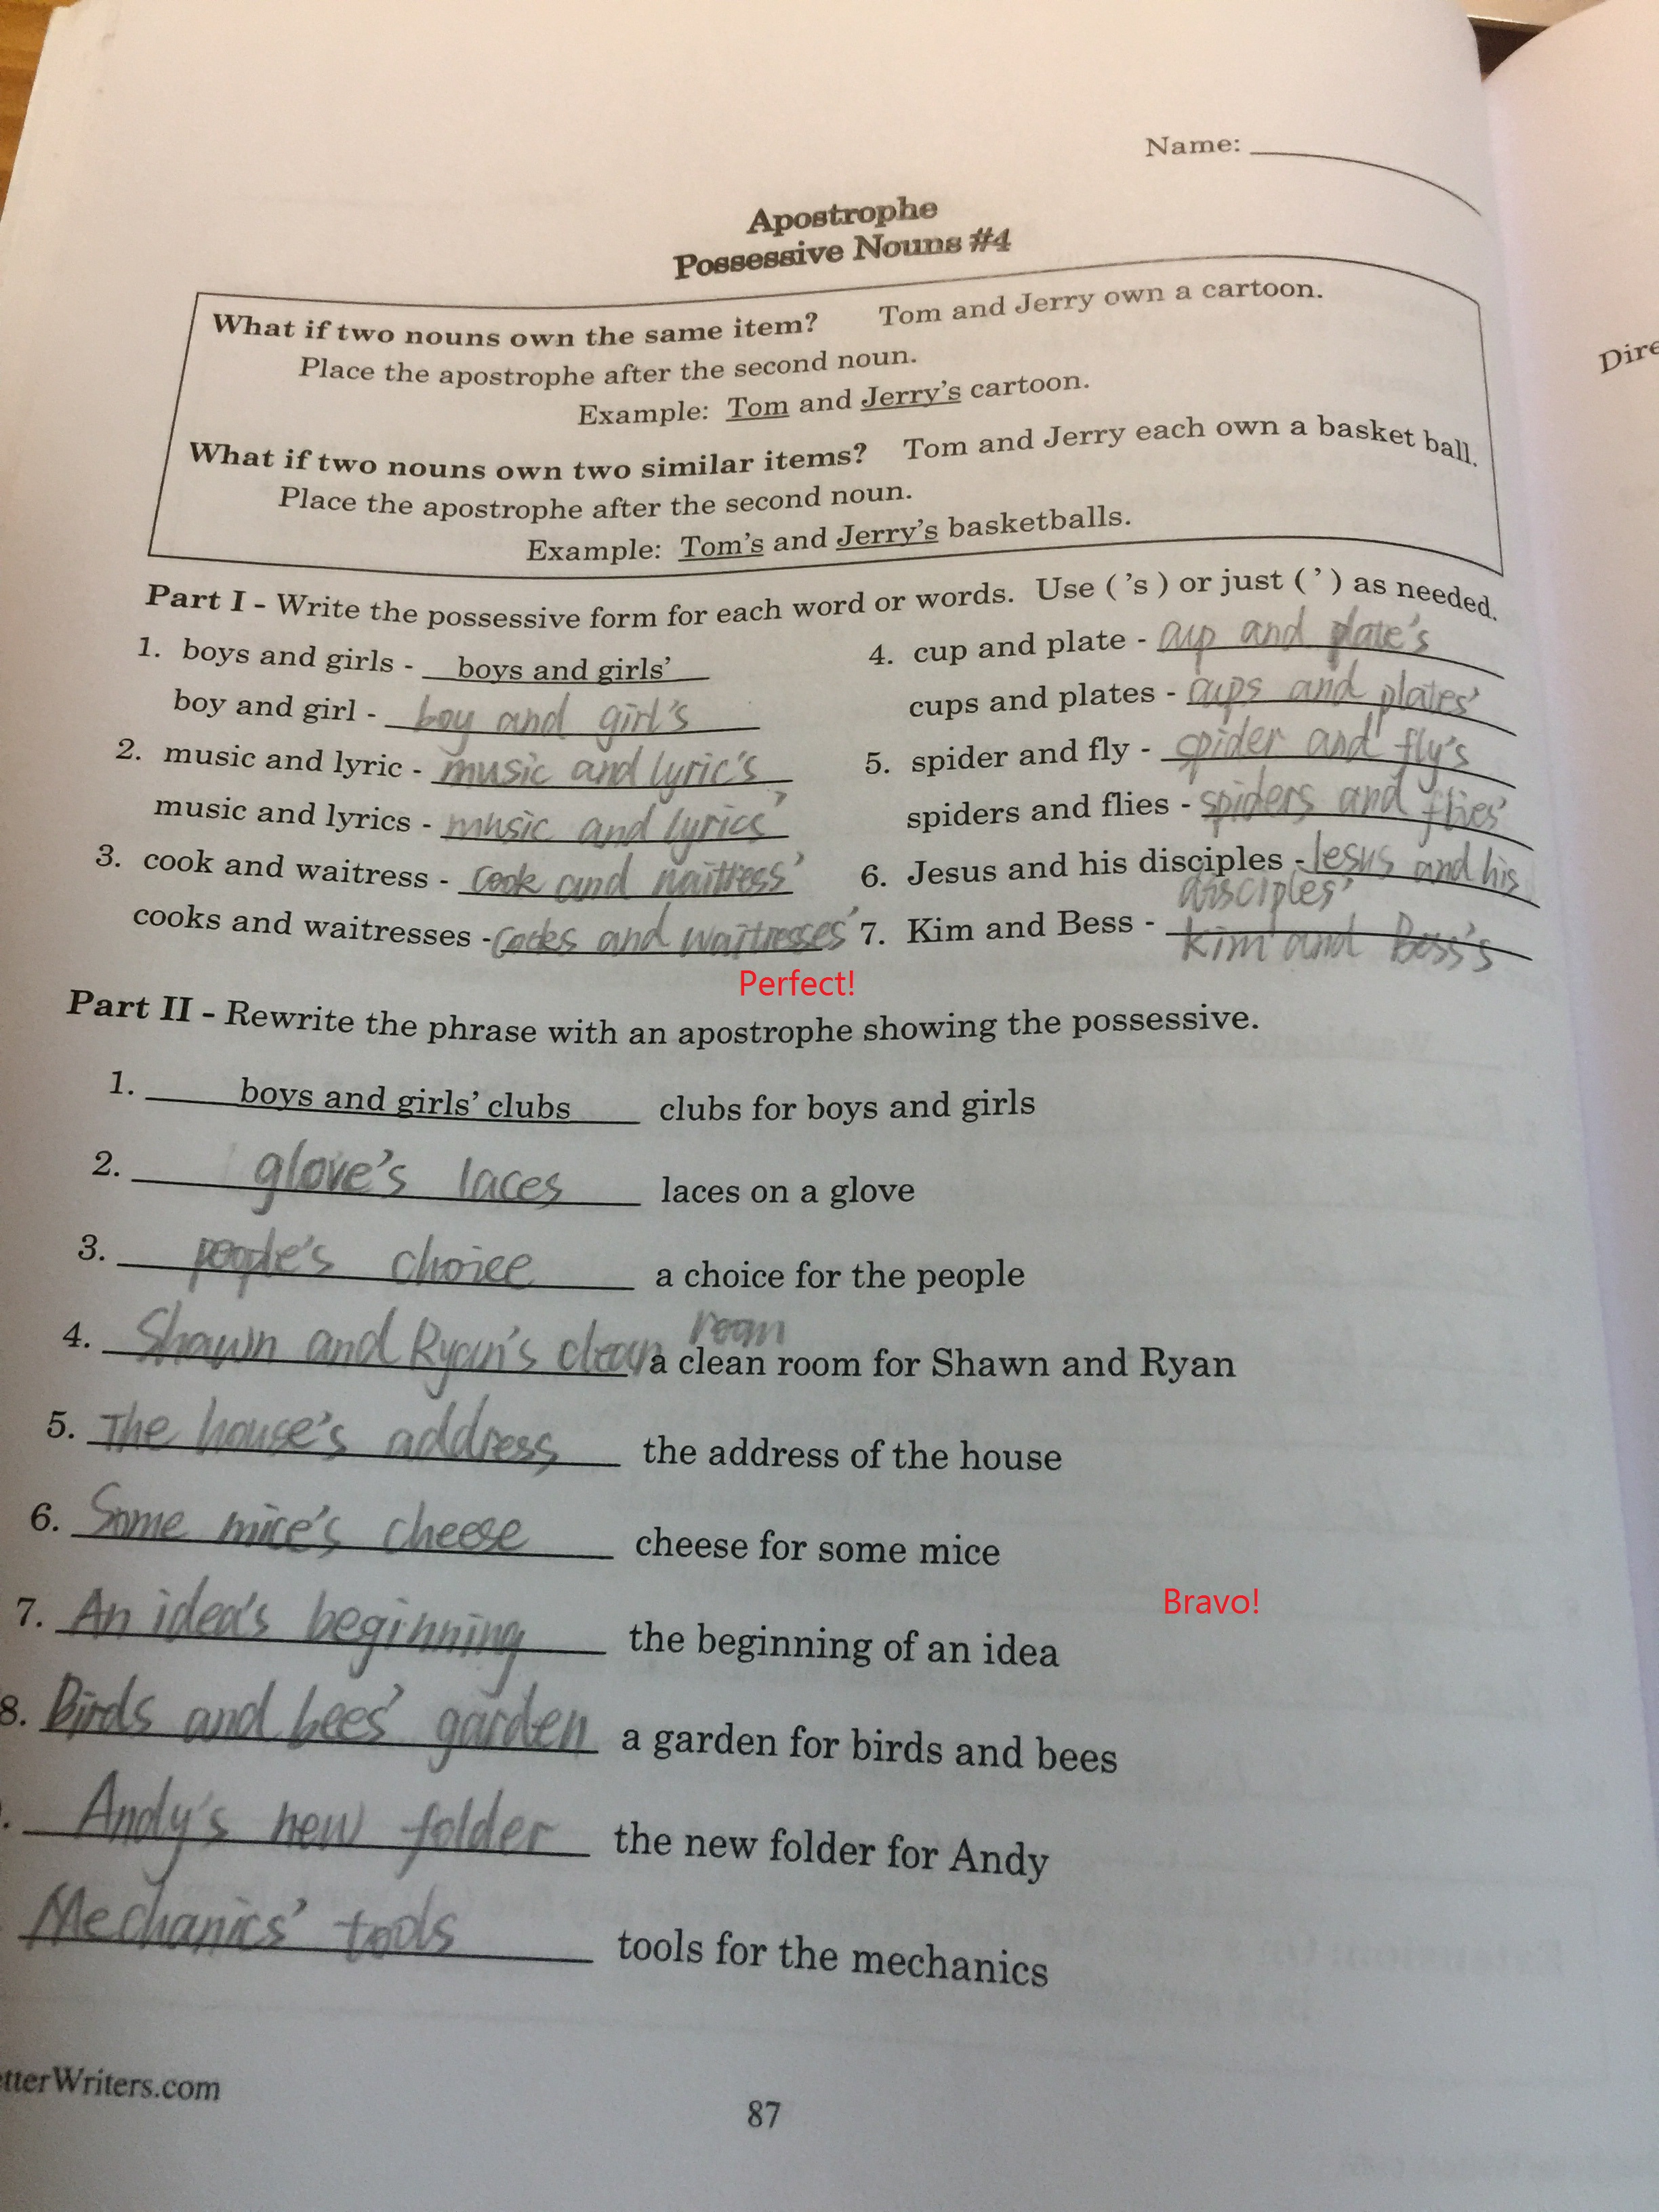 Name:
Apostrophe
Possessive Nouns #4
What if two nouns own the same item? Tom and Jerry own a cartoon.
Place the apostrophe after the second noun.
Example: Tom and Jerry's cartoon.
What if two nouns own two similar items? Tom and Jerry each own a basket ball.
Place the apostrophe after the second noun.
Example: Tom's and Jerry's basketballs.
Part I - Write the possessive form for each word or words. Use ( 's ) or just ( ' ) as needed.
1. boys and girls - boys and girls'
boy and girl - boy and girl's
2. music and lyric - music and lyric's
music and lyrics - music and lyrics'
3. cook and waitress - cook and waitress'
cooks and waitresses - cooks and waitresses'
4. cup and plate - cup and plate's
cups and plates - cups and plates'
5. spider and fly - spider and fly's
spiders and flies - spiders and flies'
6. Jesus and his disciples - Jesus and his
disciples'
7. Kim and Bess - Kim and Bess's
Perfect!
Part II - Rewrite the phrase with an apostrophe showing the possessive.
1. boys and girls' clubs clubs for boys and girls
2. glove's laces laces on a glove
3. people's choice a choice for the people
room
4. Shawn and Ryan's clean a clean room for Shawn and Ryan
5. The house's address the address of the house
6. Some mice's cheese cheese for some mice
Bravo!
7. An idea's beginning the beginning of an idea
8. Birds and bees' garden a garden for birds and bees
. Andy's new folder the new folder for Andy
Mechanics' tools tools for the mechanics
tterWriters.com
87
Dire